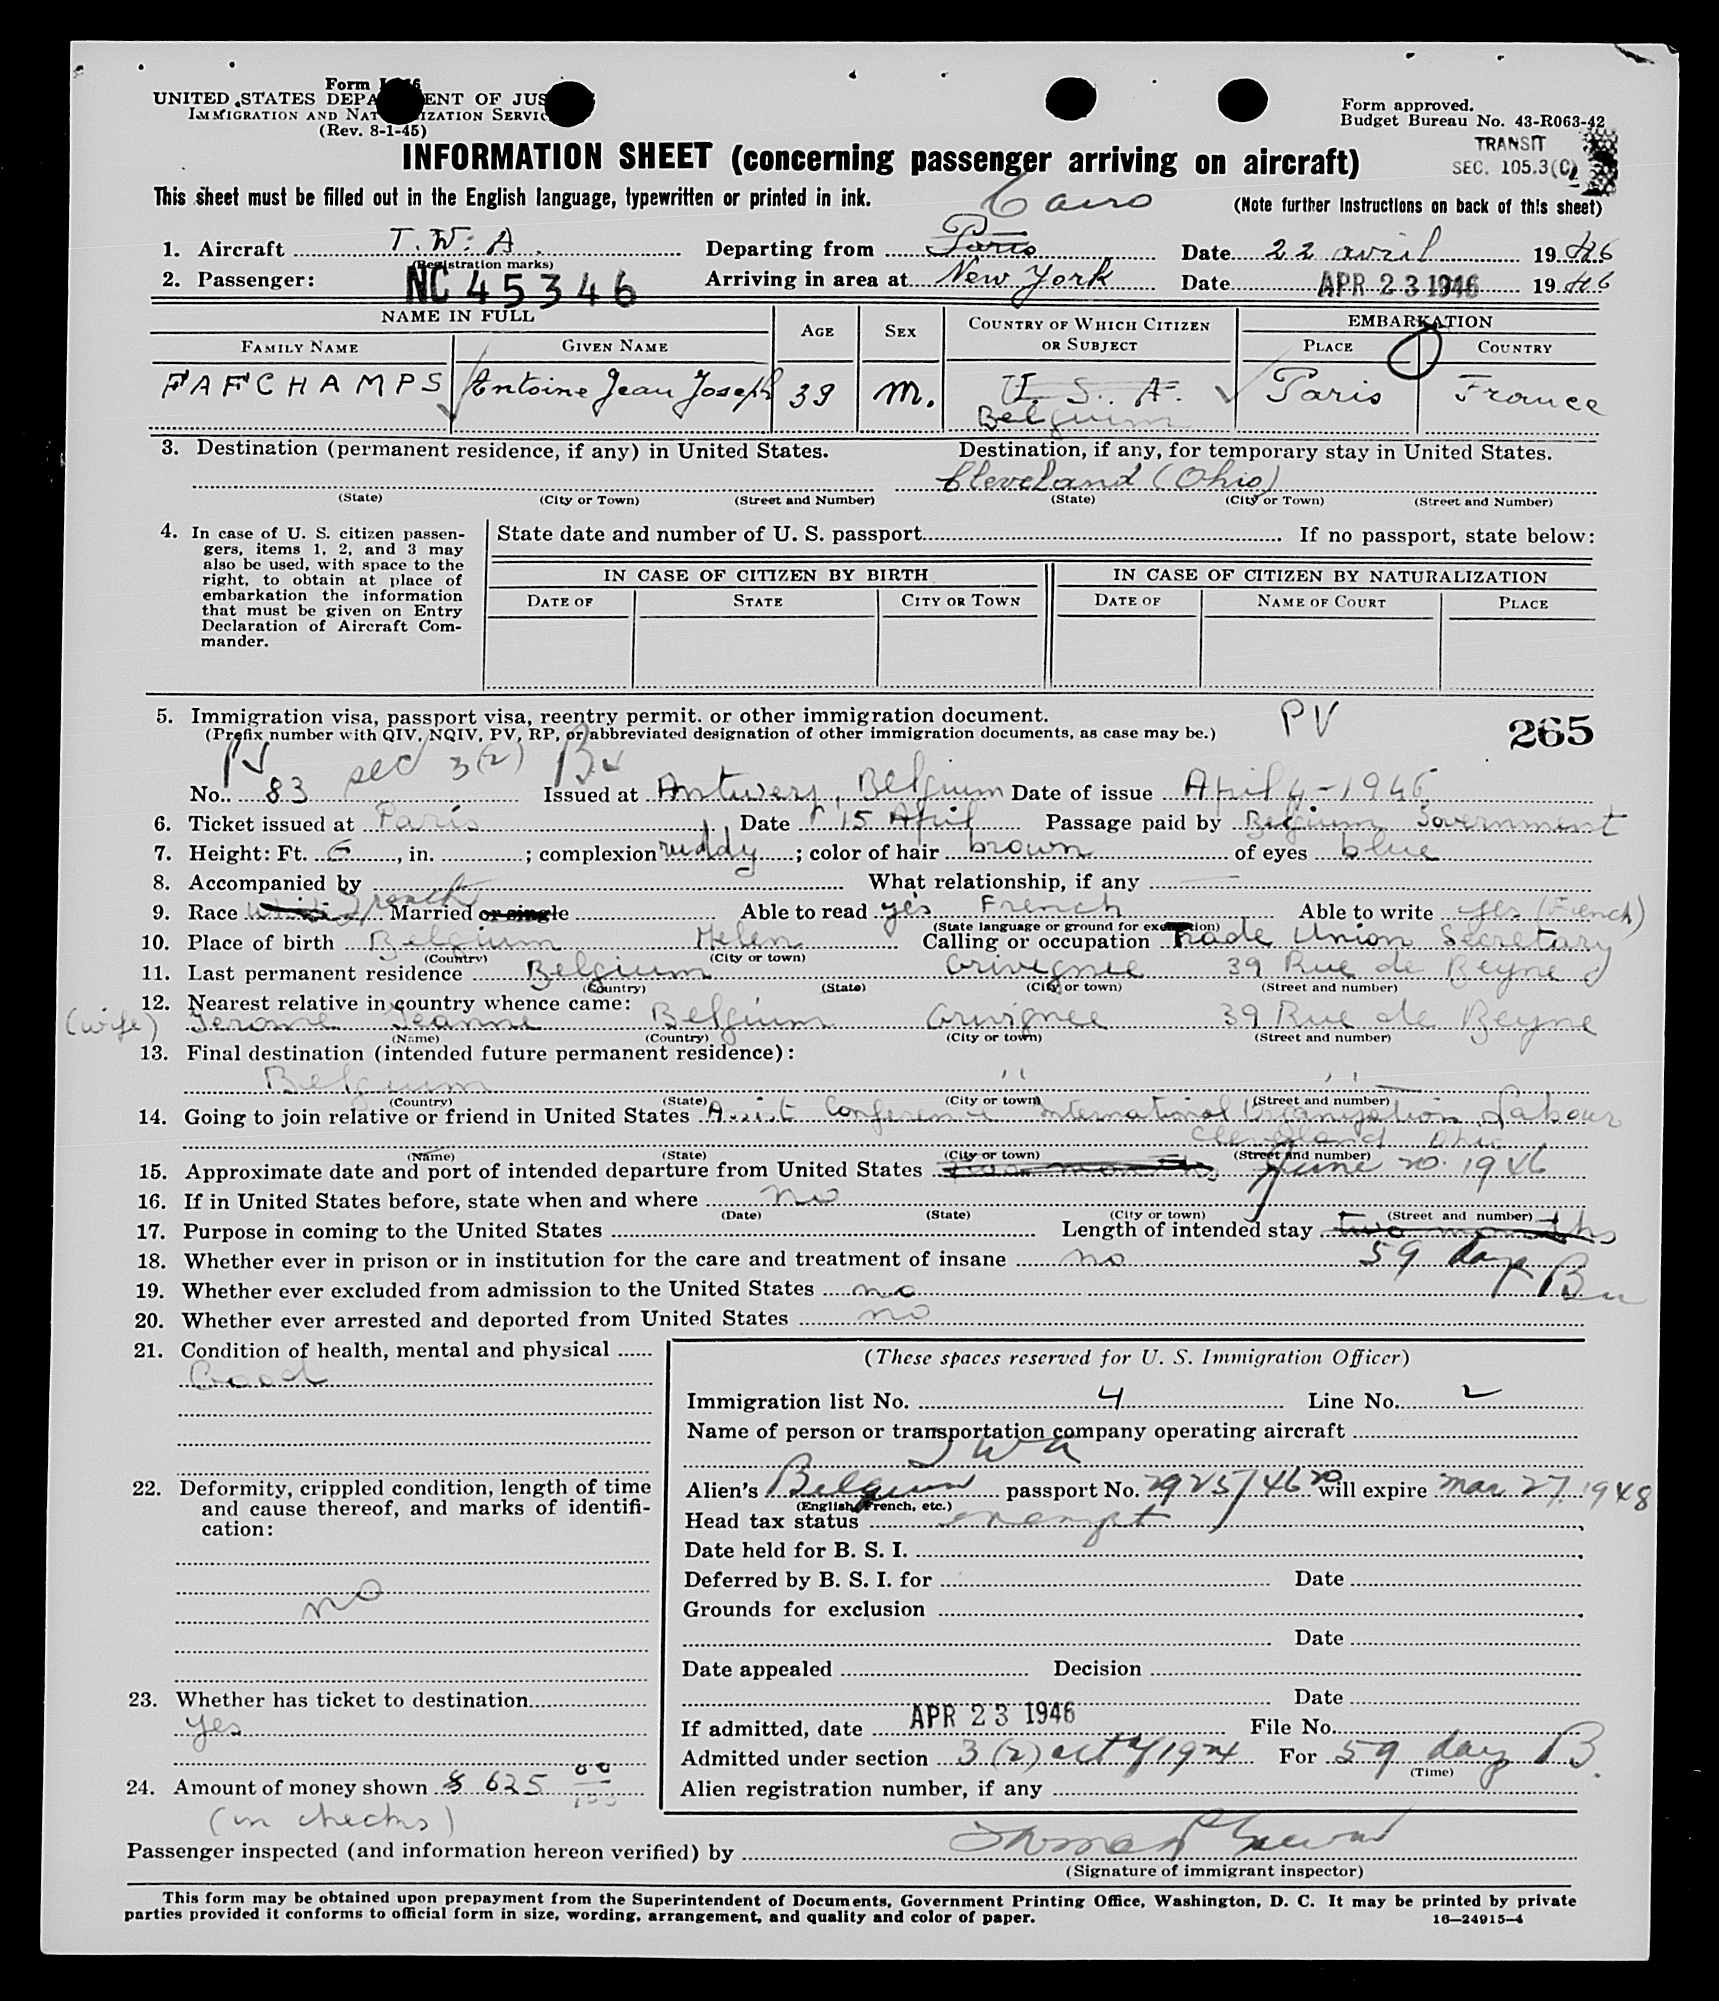 Form I
UNITED STATES DEPA ENT OF JUS
IMMIGRATION AND NAT IZATION SERVIC
(Rev. 8-1-45)
Form approved.
Budget Bureau No. 43-R063-42
TRANSIT
SEC. 105.3(C)
INFORMATION SHEET (concerning passenger arriving on aircraft)
This sheet must be filled out in the English language, typewritten or printed in ink.
(Note further instructions on back of this sheet)
Cairo
1. Aircraft T. W. A. Departing from Paris Date 22 avril 1946
(Registration marks)
2. Passenger: NC 45346 Arriving in area at New York Date APR 23 1946 1946
NAME IN FULL AGE SEX COUNTRY OF WHICH CITIZEN OR SUBJECT EMBARKATION
FAMILY NAME GIVEN NAME PLACE COUNTRY
FAFCHAMPS Antoine Jean Joseph 39 M. U. S. A. Paris France
Belgium
3. Destination (permanent residence, if any) in United States. Destination, if any, for temporary stay in United States.
Cleveland (Ohio)
(State) (City or Town) (Street and Number) (State) (City or Town) (Street and Number)
4. In case of U. S. citizen passengers, items 1, 2, and 3 may also be used, with space to the right, to obtain at place of embarkation the information that must be given on Entry Declaration of Aircraft Commander.
State date and number of U. S. passport If no passport, state below:
IN CASE OF CITIZEN BY BIRTH IN CASE OF CITIZEN BY NATURALIZATION
DATE OF STATE CITY OR TOWN DATE OF NAME OF COURT PLACE
5. Immigration visa, passport visa, reentry permit. or other immigration document. PV 265
(Prefix number with QIV, NQIV, PV, RP, or abbreviated designation of other immigration documents, as case may be.)
PV sec 3(2)
No. 83 Issued at Antwerp, Belgium Date of issue April 4 - 1946
6. Ticket issued at Paris Date 15 April Passage paid by Belgium Government
7. Height: Ft. 6, in. ; complexion ruddy; color of hair brown of eyes blue
8. Accompanied by What relationship, if any
9. Race White French Married or single Able to read yes French Able to write yes (French)
(State language or ground for exemption)
10. Place of birth Belgium Melen Calling or occupation Trade Union Secretary
(Country) (City or town)
11. Last permanent residence Belgium Grivegnee 39 Rue de Beyne
(Country) (State) (City or town) (Street and number)
12. Nearest relative in country whence came:
(wife) Jerome Jeanne Belgium Grivegnee 39 Rue de Beyne
(Name) (Country) (City or town) (Street and number)
13. Final destination (intended future permanent residence):
Belgium " "
(Country) (State) (City or town) (Street and number)
14. Going to join relative or friend in United States Assist Conference International Organization Labour
Cleveland Ohio
(Name) (State) (City or town) (Street and number)
15. Approximate date and port of intended departure from United States June 20. 1946
16. If in United States before, state when and where no
(Date) (State) (City or town) (Street and number)
17. Purpose in coming to the United States Length of intended stay two months
59 days
18. Whether ever in prison or in institution for the care and treatment of insane no
19. Whether ever excluded from admission to the United States no
20. Whether ever arrested and deported from United States no
21. Condition of health, mental and physical
Good
22. Deformity, crippled condition, length of time and cause thereof, and marks of identification:
no
23. Whether has ticket to destination
yes
24. Amount of money shown $ 625 00/100
(in checks)
(These spaces reserved for U. S. Immigration Officer)
Immigration list No. 4 Line No. 2
Name of person or transportation company operating aircraft
TWA
Alien's Belgium passport No. 2925/4620 will expire Mar 27, 1948
(English, French, etc.)
Head tax status exempt
Date held for B. S. I.
Deferred by B. S. I. for Date
Grounds for exclusion
Date
Date appealed Decision
Date
If admitted, date APR 23 1946 File No.
Admitted under section 3 (2) act of 1924 For 59 days B.
(Time)
Alien registration number, if any
Passenger inspected (and information hereon verified) by
(Signature of immigrant inspector)
This form may be obtained upon prepayment from the Superintendent of Documents, Government Printing Office, Washington, D. C. It may be printed by private
parties provided it conforms to official form in size, wording, arrangement, and quality and color of paper.
16—24915-4